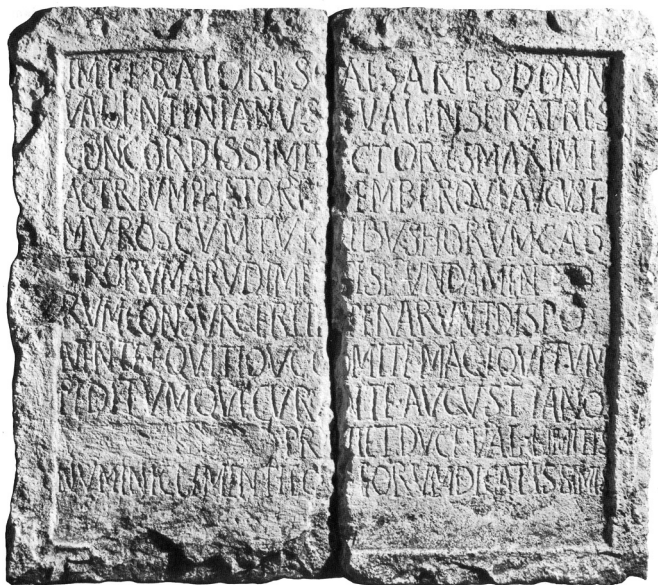 IMPERATORES CAESARES DD NN
VALENTINIANVS VALENS FRATRES
CONCORDISSIMI VICTORES MAXIMI
AC TRIVMPHATORES SEMPERQVE AVGVSTI
MVROS CVM TVRRIBVS HORVM CAS
TRORVM A RVDIMENTIS FVNDAMENTO
RVM CONSVRGERE IMPERARVNT DISPO
NENTE EQVITIO COMITE MAG EQVITVM
PEDITVMQVE CVRANTE AVGVSTIANO
DVCE VAL LIMITIS
NVMINI DICATISSIMI